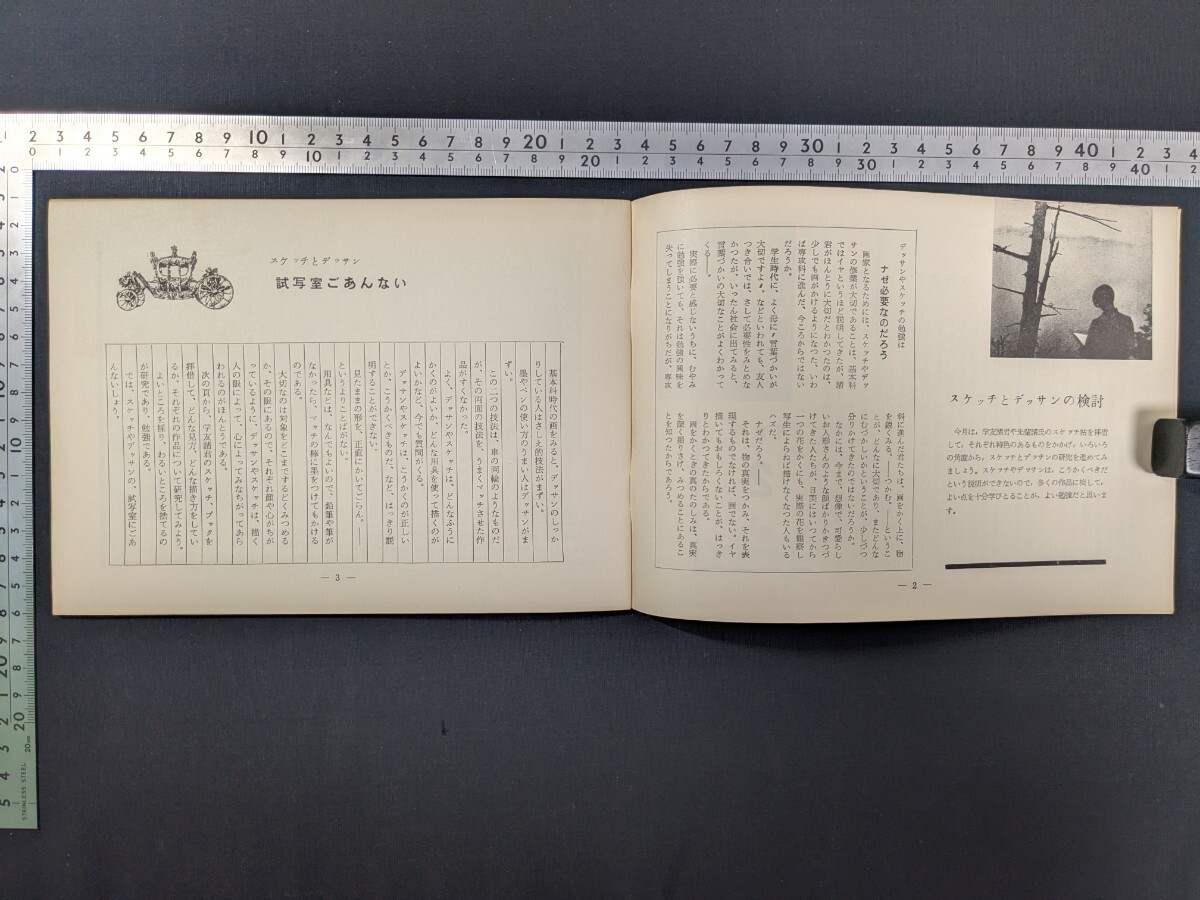 スケッチとデッサンの検討
今月は，学友諸君や先輩諸氏のスケッチ帖を拝借
して，それぞれ特色のあるものをかかげ，いろいろ
の角度から，スケッチとデッサンの研究を進めてみ
ましょう。スケッチやデッサンは，こうかくべきだ
という説明ができないので，多くの作品に接し，
よい点を十分学びとることが，よい勉強だと思いま
す。
デッサンやスケッチの勉強は
ナゼ必要なのだろう
画家となるためには、スケッチやデッ
サンの修業が大切であることは、基本科
ではイヤというほど説明してきたが、諸
君がほんとうに大切だとわかつたのは、
少しでも画がかけるようになつた、いわ
ば専攻科に進んだ、今ころからではない
だろうか。
学生時代に、よく母に〃言葉づかいが
大切ですよ〃、などといわれても、友人
つき合いでは、さして必要性をみとめな
かつたが、いつたん社会に出てみると、
言葉づかいの大切なことがよくわかつて
くる――。
実際に必要と感じないうちに、むやみ
に勉強を強いても、それは勉強の興味を
失つてしまうことになりがちだが、専攻
科に進んだ君たちは、画をかく上に、物
を鋭くみる、――つかむ、――というこ
とが、どんなに大切であり、またどんな
にむづかしいかということが、少しづつ
分りかけてきたのではないだろうか。
なかには、今まで、想像で、可愛らし
いお人形さんのような顔ばかりかきつづ
けてきた人たちが、日本美にはいつてから
一つの花をかくにも、実際の花を観察し
写生によらねば描けなくなつた人もいる
ハズだ。
ナゼだろう。――
それは、物の真実をつかみ、それを表
現するものでなければ、画でない。イヤ
描いてもおもしろくないことが、はつき
りとわかつてきたからである。
画をかくときの真のたのしみは、真実
を深く掘りさげ、みつめることにあるこ
とを知つたからであろう。
― 2 ―
スケッチとデッサン
試写室ごあんない
基本科時代の画をみると、デッサンのしつか
りしている人はさしえ的技法がまずい。
墨やペンの使い方のうまい人はデッサンがま
ずい。
この二つの技法は、車の両輪のようなものだ
が、その両面の技法を、うまくマッチさせた作
品がすくなかつた。
よく、デッサンやスケッチは、どんなふうに
かくのがよいか、どんな用具を使つて描くのが
よいかなど、今でも質問がくる。
デッサンやスケッチは、こうかくのが正しい
とか、こうかくべきものだ、など、はつきり説
明することができない。
見たままの形を、正直にかいてごらん。――
というよりことばがない。
用具などは、なんでもよいので、鉛筆や筆が
なかつたら、マッチの棒に墨をつけてもかける
のである。
大切なのは対象をどこまでするどくみつめる
か、その眼にあるので、それぞれ顔や心がち
がつているように、デッサンやスケッチは、描く
人の眼によつて、心によつてみなちがつてあら
われるのがほんとうである。
次の頁から、学友諸君のスケッチ、ブックを
拝借して、どんな見方、どんな描き方をしてい
るか、それぞれの作品について研究してみよう。
よいところを採り、わるいところを捨てるの
が研究であり、勉強である。
では、スケッチやデッサンの、試写室にごあ
んないしましょう。
― 3 ―
STAINLESS STEEL